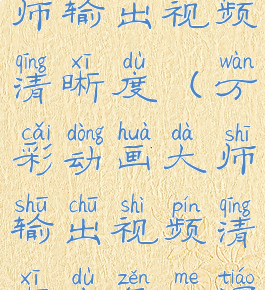 师输出视频
qīng xī dù wàn
清晰度（万
cǎi dòng huà dà shī
彩动画大师
shū chū shì pín qīng
输出视频清
xī dù zěn me tiáo